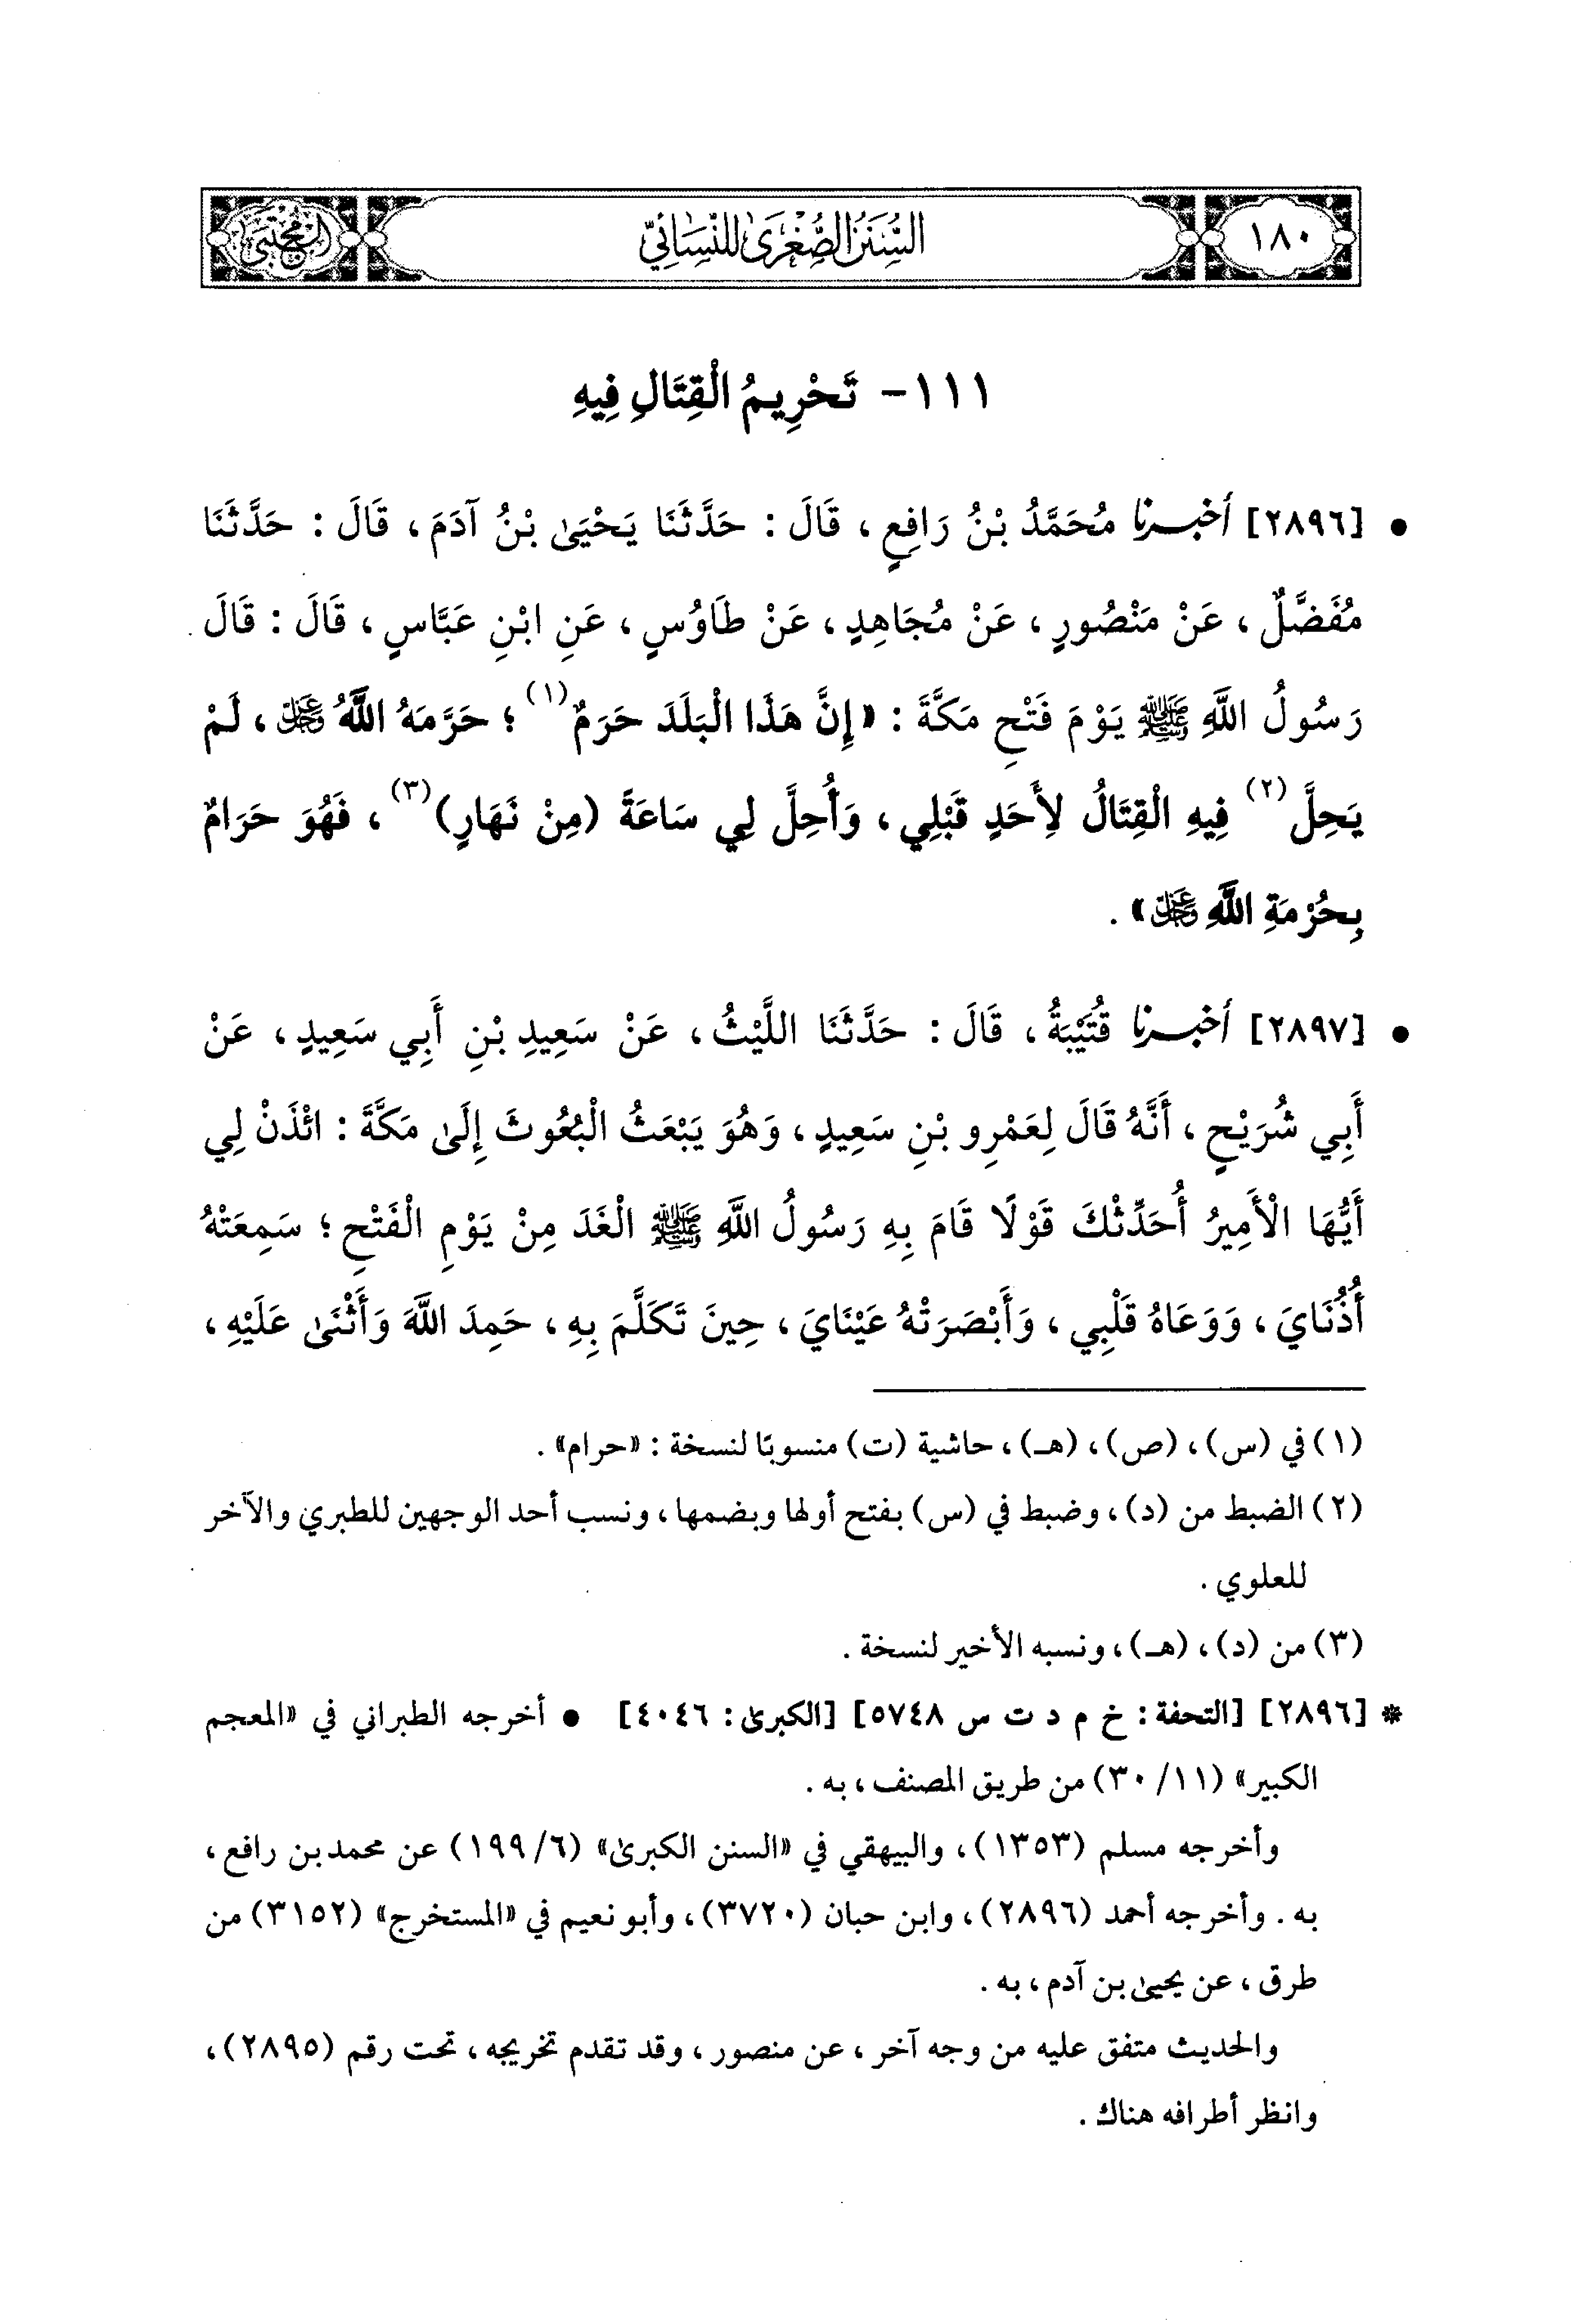 ١٨٠
السُّنَنُ الصُّغْرَىٰ لِلنَّسَائِيِّ
المجتبى
١١١ - تَحْرِيمُ الْقِتَالِ فِيهِ
• [٢٨٩٦] أخبرنا مُحَمَّدُ بْنُ رَافِعٍ، قَالَ: حَدَّثَنَا يَحْيَىٰ بْنُ آدَمَ، قَالَ: حَدَّثَنَا
مُفَضَّلٌ، عَنْ مَنْصُورٍ، عَنْ مُجَاهِدٍ، عَنْ طَاوُسٍ، عَنِ ابْنِ عَبَّاسٍ، قَالَ: قَالَ
رَسُولُ اللَّهِ ﷺ يَوْمَ فَتْحِ مَكَّةَ: «إِنَّ هَذَا الْبَلَدَ حَرَمٌ(١)؛ حَرَّمَهُ اللَّهُ عَزَّ وَجَلَّ، لَمْ
يَحِلَّ(٢) فِيهِ الْقِتَالُ لِأَحَدٍ قَبْلِي، وَأُحِلَّ لِي سَاعَةً (مِنْ نَهَارٍ)(٣)، فَهُوَ حَرَامٌ
بِحُرْمَةِ اللَّهِ عَزَّ وَجَلَّ».
• [٢٨٩٧] أخبرنا قُتَيْبَةُ، قَالَ: حَدَّثَنَا اللَّيْثُ، عَنْ سَعِيدِ بْنِ أَبِي سَعِيدٍ، عَنْ
أَبِي شُرَيْحٍ، أَنَّهُ قَالَ لِعَمْرِو بْنِ سَعِيدٍ، وَهُوَ يَبْعَثُ الْبُعُوثَ إِلَىٰ مَكَّةَ: ائْذَنْ لِي
أَيُّهَا الْأَمِيرُ أُحَدِّثْكَ قَوْلًا قَامَ بِهِ رَسُولُ اللَّهِ ﷺ الْغَدَ مِنْ يَوْمِ الْفَتْحِ؛ سَمِعَتْهُ
أُذُنَايَ، وَوَعَاهُ قَلْبِي، وَأَبْصَرَتْهُ عَيْنَايَ، حِينَ تَكَلَّمَ بِهِ، حَمِدَ اللَّهَ وَأَثْنَىٰ عَلَيْهِ،
(١) في (س)، (ص)، (هـ)، حاشية (ت) منسوبًا لنسخة: «حرام».
(٢) الضبط من (د)، وضبط في (س) بفتح أولها وبضمها، ونسب أحد الوجهين للطبري والآخر
للعلوي.
(٣) من (د)، (هـ)، ونسبه الأخير لنسخة.
* [٢٨٩٦] [التحفة: خ م د ت س ٥٧٤٨] [الكبرىٰ: ٤٠٤٦] • أخرجه الطبراني في «المعجم
الكبير» (١١/ ٣٠) من طريق المصنف، به.
وأخرجه مسلم (١٣٥٣)، والبيهقي في «السنن الكبرىٰ» (٦/ ١٩٩) عن محمد بن رافع،
به. وأخرجه أحمد (٢٨٩٦)، وابن حبان (٣٧٢٠)، وأبو نعيم في «المستخرج» (٣١٥٢) من
طرق، عن يحيىٰ بن آدم، به.
والحديث متفق عليه من وجه آخر، عن منصور، وقد تقدم تخريجه، تحت رقم (٢٨٩٥)،
وانظر أطرافه هناك.